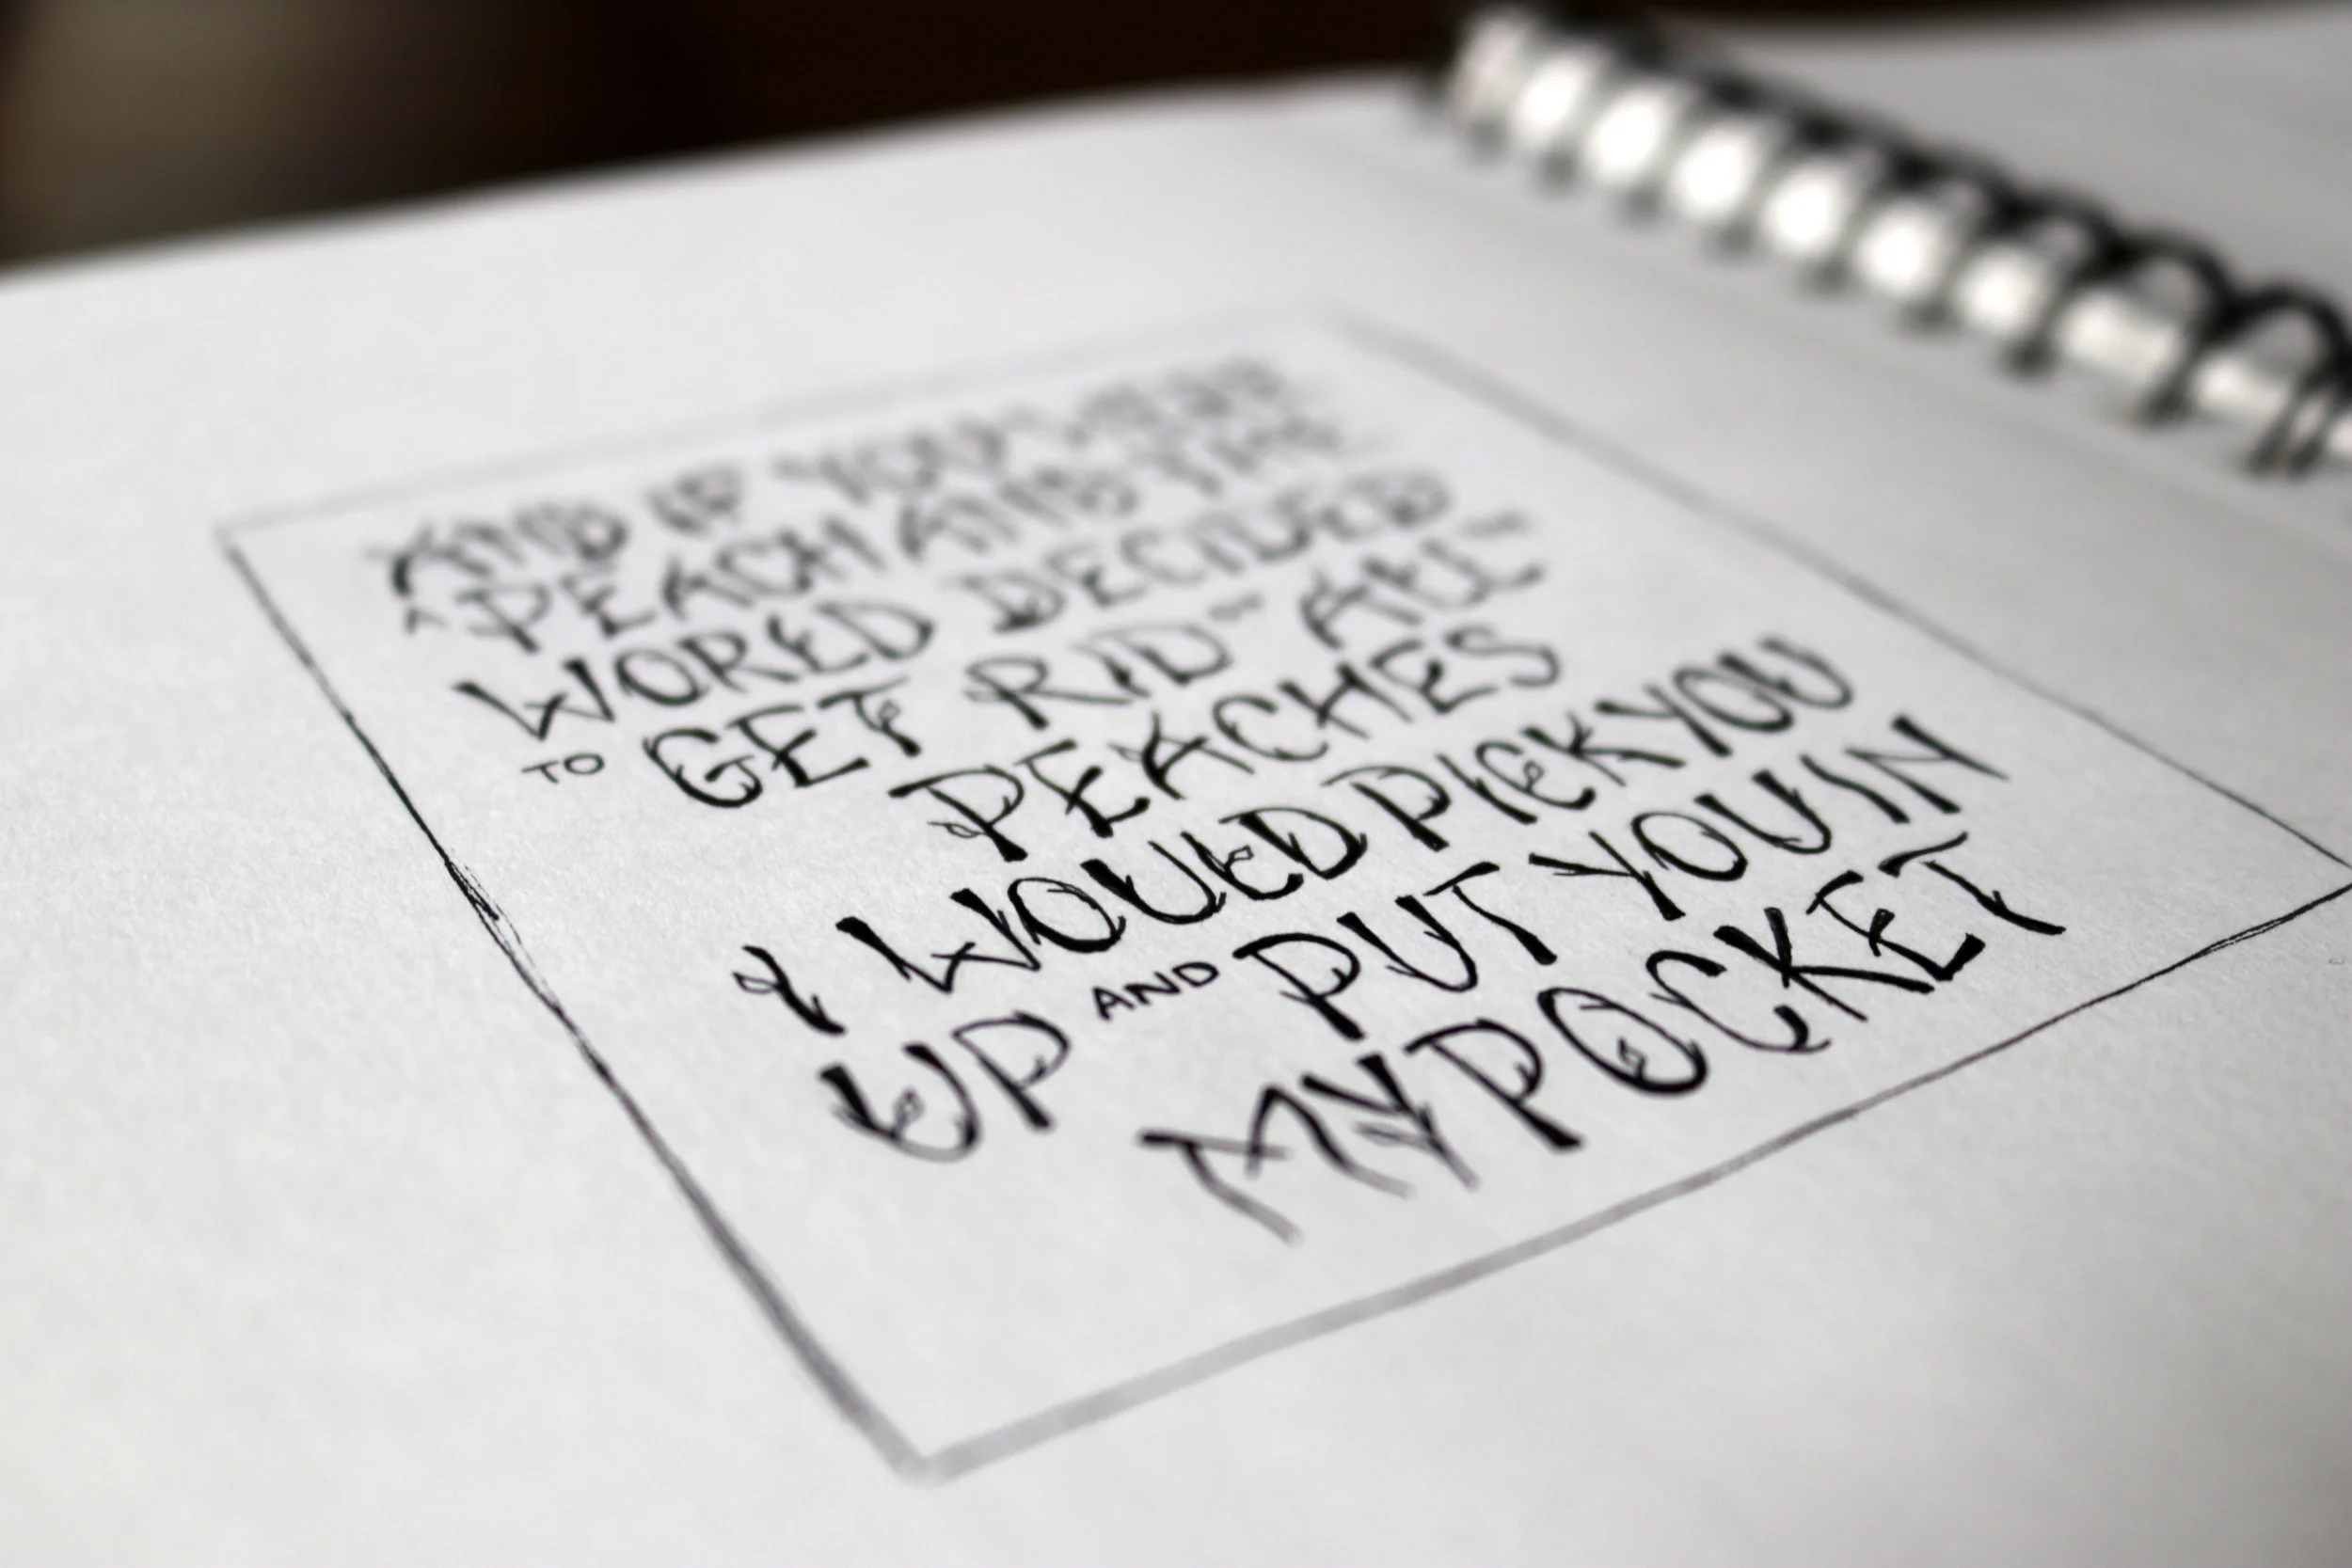 AND IF YOU WERE
A PEACH AND THE
WORLD DECIDED
TO GET RID ALL
PEACHES
I WOULD PICK YOU
UP AND PUT YOU IN
MY POCKET